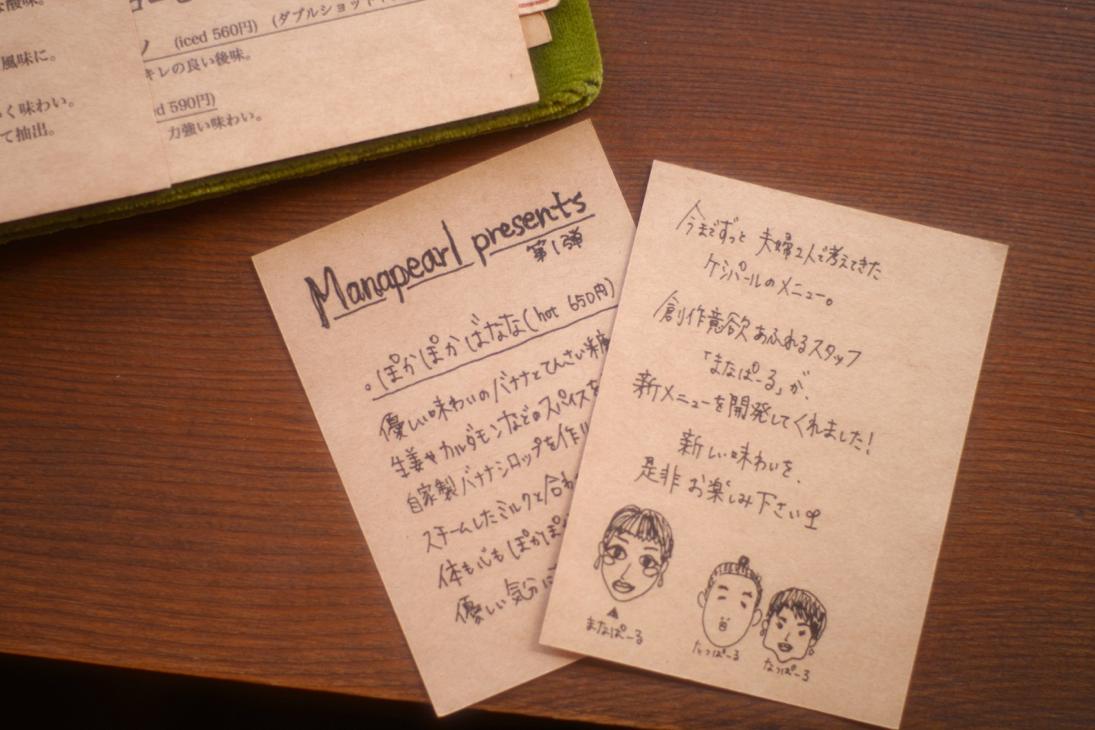 な酸味。
風味に。
く味わい。
て抽出。
(iced 560円) (ダブルショット
キレの良い後味。
590円)
力強い味わい。
Manapearl presents
第1弾
。ぽかぽかばなな(hot 650円)
優しい味わいのバナナとてんさい糖
生姜やカルダモンなどのスパイスを
自家製バナナシロップを作り
スチームしたミルクと合わ
体も心もぽかぽ
優しい気分に
今までずっと 夫婦2人で考えてきた
ケシパールのメニュー。
創作意欲あふれるスタッフ
「まなぱーる」が、
新メニューを開発してくれました!
新しい味わいを、
是非 お楽しみ下さい
まなぱーる
たっぱーる
なっぱーる